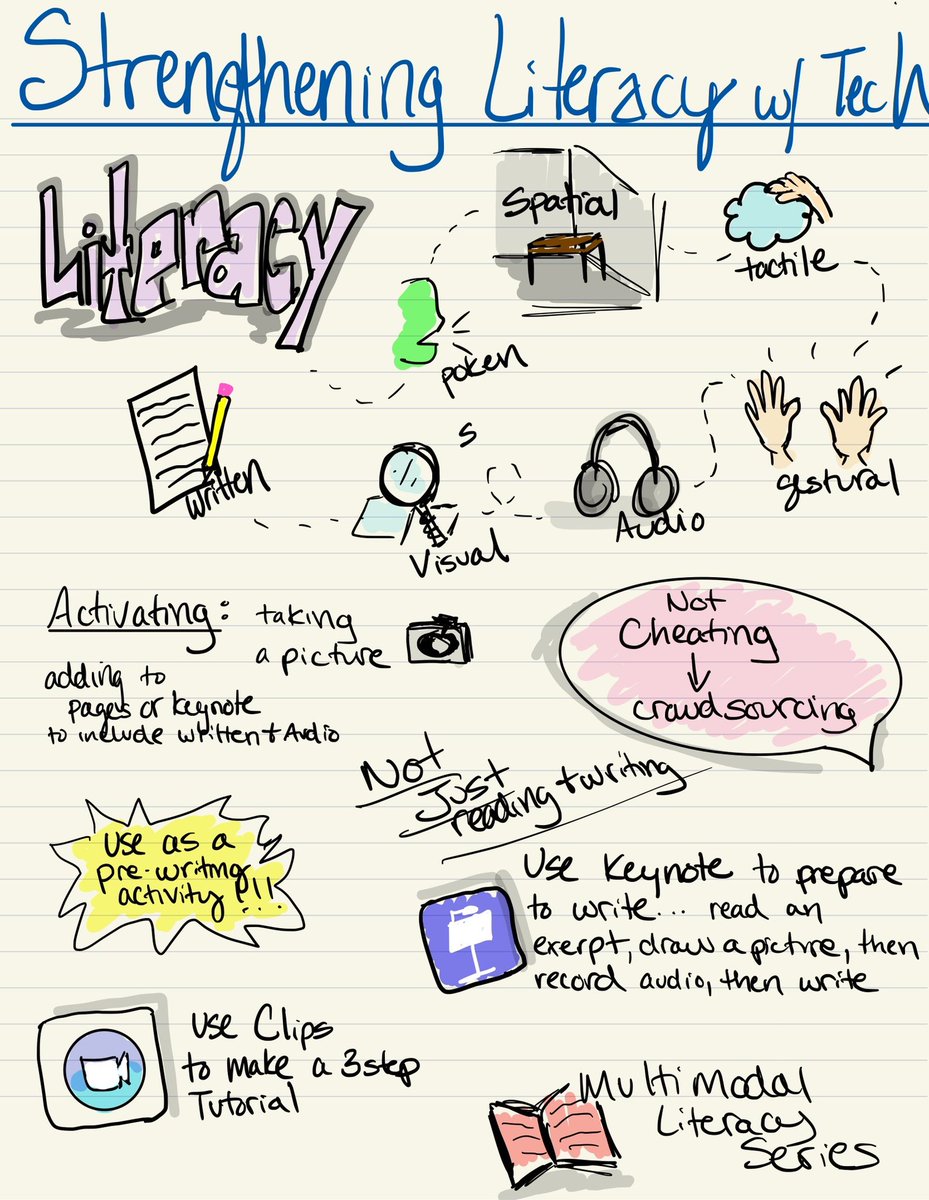 Strengthening Literacy w/ Tech
Literacy
Spatial
tactile
poken
s
written
Visual
Audio
gestural
Activating: taking
a picture
adding to
pages or keynote
to include written + Audio
Not
Cheating
↓
crowdsourcing
Not
Just
reading + writing
use as a
pre-writing
activity!!!
Use Keynote to prepare
to write... read an
exerpt, draw a picture, then
record audio, then write
use Clips
to make a 3 step
Tutorial
MultiModal
Literacy
Series